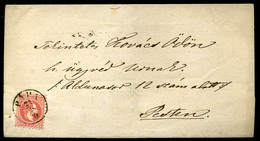 Tekintetes Kovács Ödön
h. ügyvéd Urnak
f. Aldunasor 12 szám alatt
Pesten
PÁPA